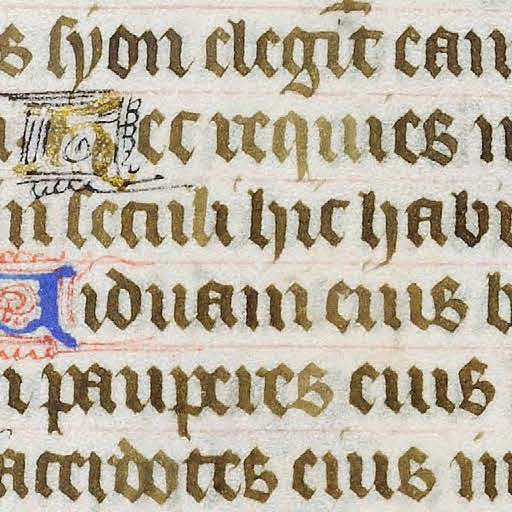 s syon elegit eam
Hec requies m
m seculi hic habi
Viduam eius b
m pauperes eius
acerdotes eius in